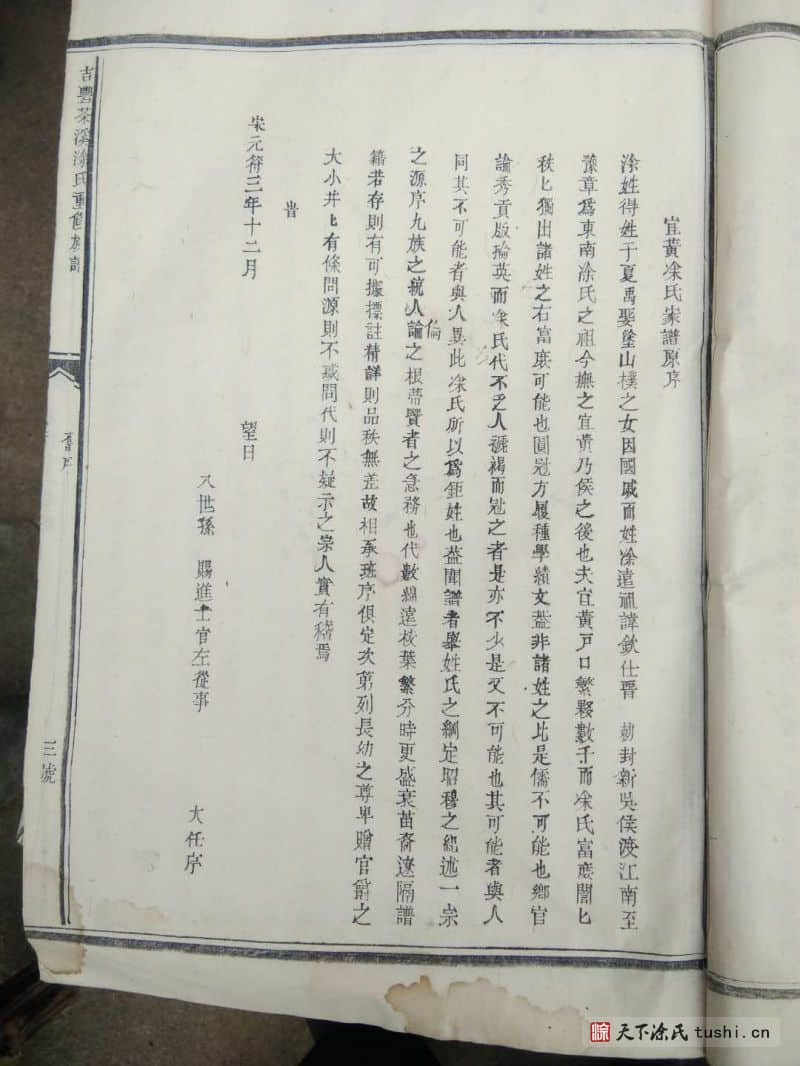 宜黄凃氏家譜原序
涂姓得姓于夏禹娶塗山樸之女因國戚而姓凃遠祖諱欽仕晋 勅封新吳侯渡江南至
豫章爲東南凃氏之祖今撫之宜黄乃侯之後也夫宜黄戸口繁夥數千而凃氏富庶誾匕
秩匕獨出諸姓之右富庶可能也圓冠方履種學績文葢非諸姓之比是儒不可能也鄉官
論秀貢版掄英而凃氏代不乏人禠褐而冠之者是亦不少是又不可能也其可能者與人
同其不可能者與人異此凃氏所以爲鉅姓也葢聞譜者舉姓氏之綱定昭穆之紀述一宗
之源序九族之統人論之根蒂賢者之急務也代數綿遠枝葉繁分時更盛衰苗裔遼隔譜
倫
籍若存則有可據標註精詳則品秩無差故相承班序俱定次第列長幼之尊卑贈官爵之
大小井匕有條問源則不惑問代則不疑示之宗人賞有稽焉
旹
宋元符三年十二月 望日
八世孫 賜進士官左從事 大任序
吉豐茶溪凃氏重修族譜
舊序
三號
天下涂氏 tushi.cn